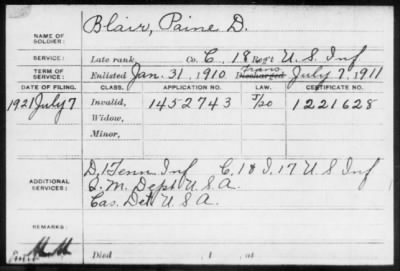 Blair, Paine D.
NAME OF
SOLDIER:
SERVICE: Late rank, Co. C, 18 Reg't U.S. Inf
TERM OF
SERVICE: Enlisted Jan. 31, 1910, Trans Discharged July 7, 1911
DATE OF FILING. CLASS. APPLICATION NO. LAW. CERTIFICATE NO.
1921 July 7 Invalid, 1452743 7/20 1221628
Widow,
Minor,
ADDITIONAL
SERVICES:
D, 1 Tenn Inf C. 18 I. 17 U S Inf
Q. M. Dept U.S.A.
Cas. Det U.S.A.
REMARKS:
Died , 1 , at